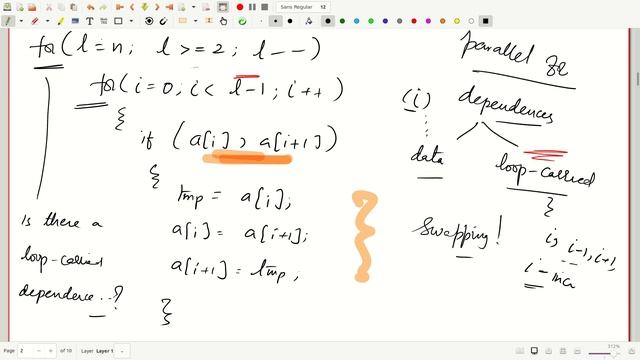 Sans Regular 12
for(l=n; l>=2; l--)
for(i=0; i< l-1; i++)
{
if (a[i] > a[i+1])
{
tmp = a[i];
a[i] = a[i+1];
a[i+1] = tmp;
}
}
is there a
loop-carried
dependence..?
parallel for
dependences
(i)
data
loop-carried
}
Swapping!
i, i-1, i+1,
Page 2 of 10 Layer Layer 1
312%